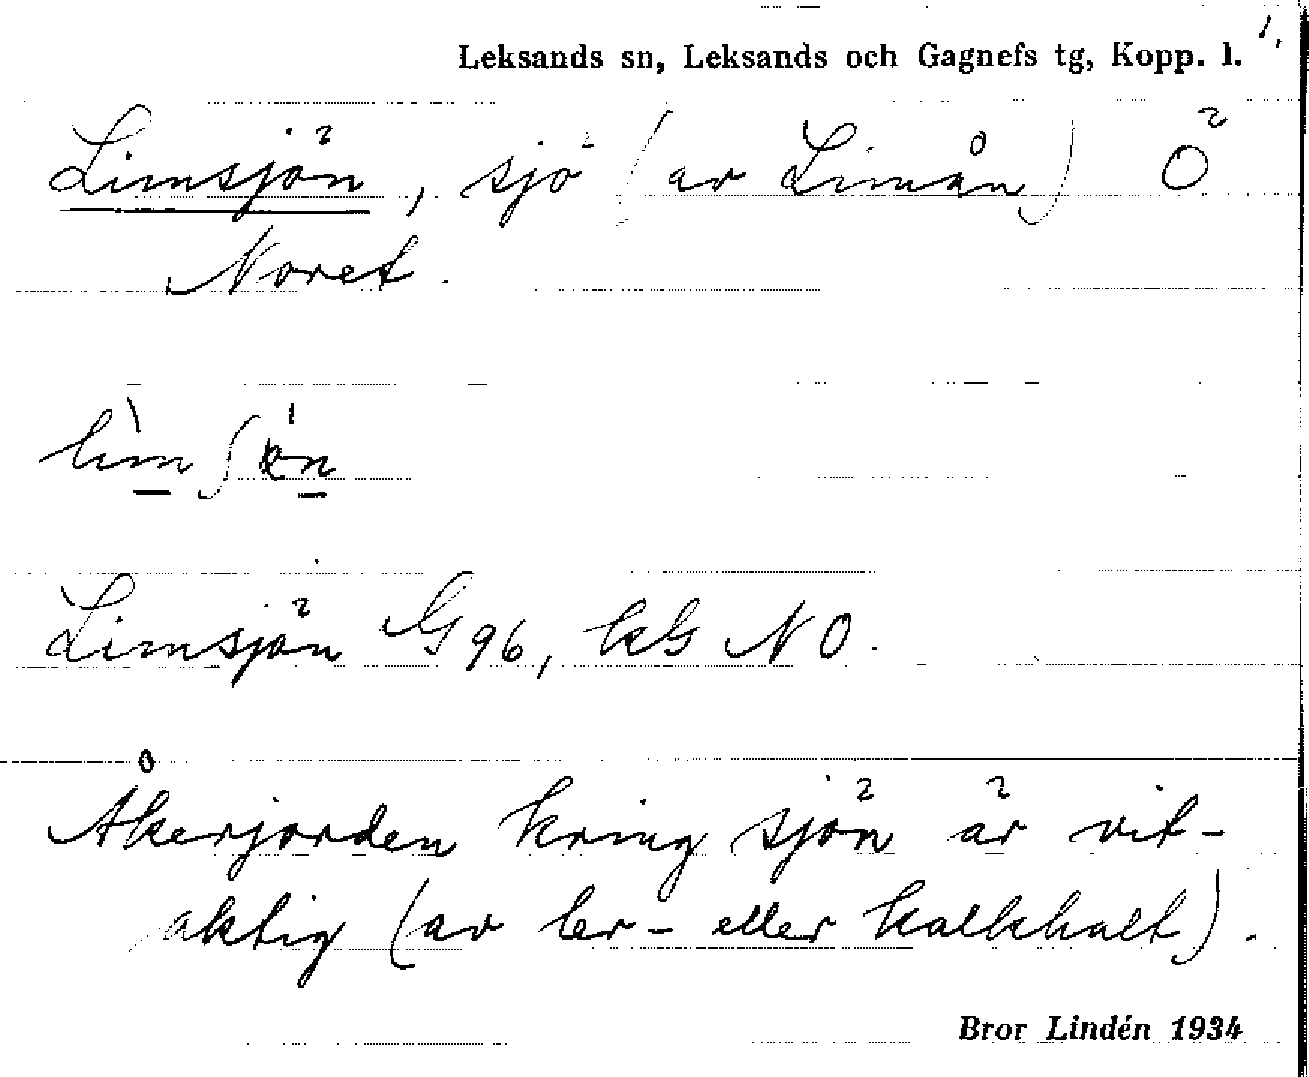 1.
Leksands sn, Leksands och Gagnefs tg, Kopp. l.
Limsjön, sjö (av Limån) Ö
Noret.
Limsjön G96, kG NO.
Åkerjorden kring sjön är vit-
aktig (av ler- eller kalkhalt).
Bror Lindén 1934